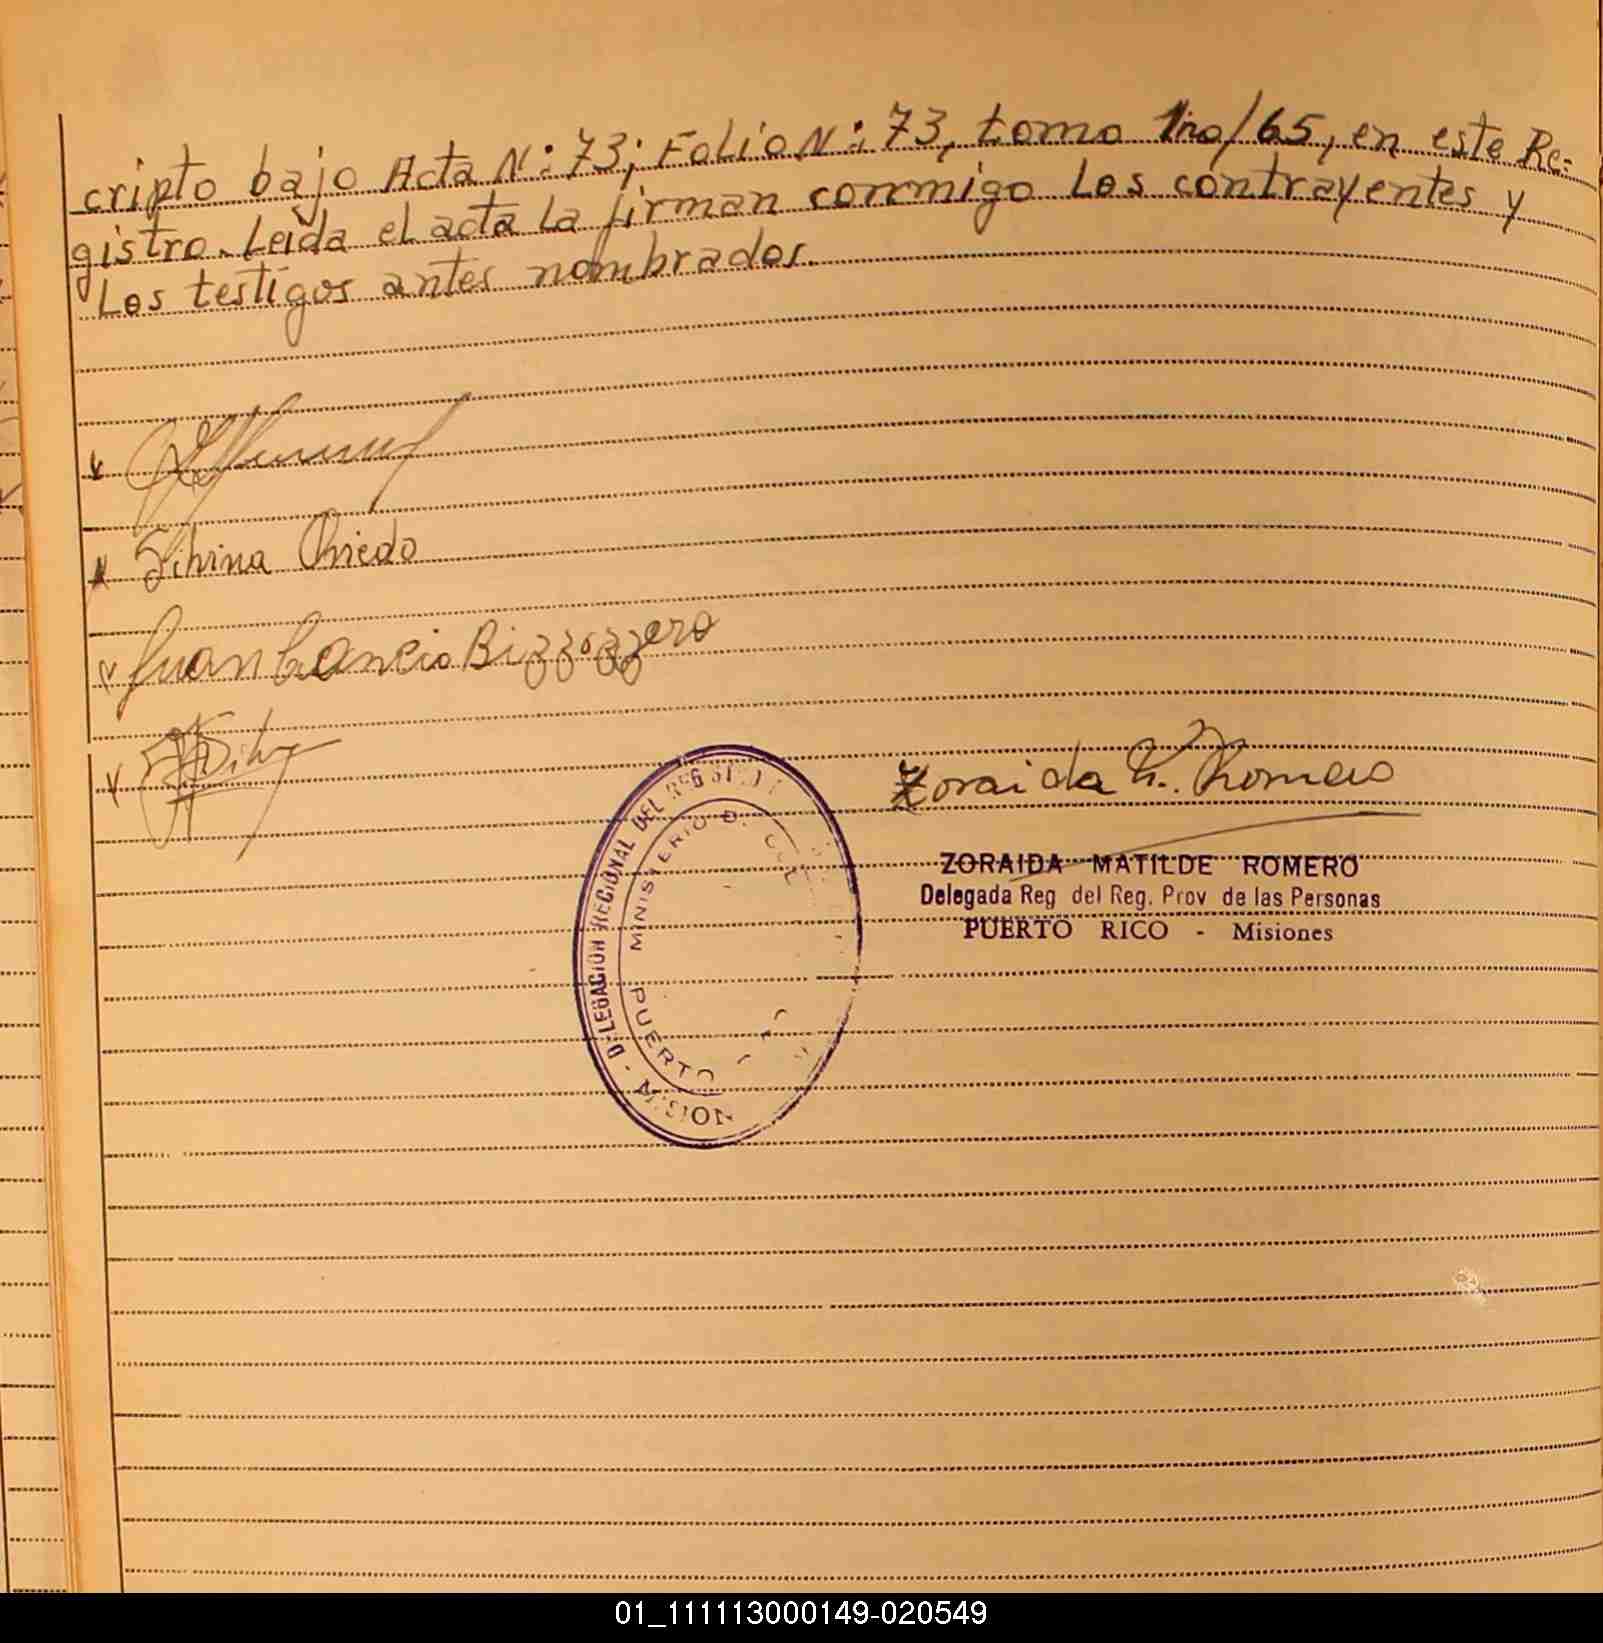 cripto bajo Acta N: 73; Folio N: 73, tomo 1ro/65, en este Re-
gistro. Leida el acta la firman conmigo los contrayentes y
Los testigos antes nombrados.
Silvina Oviedo
Juan Cancio Bizzozzero
Zoraida M. Romero
ZORAIDA MATILDE ROMERO
Delegada Reg del Reg. Prov de las Personas
PUERTO RICO - Misiones
DELEGACION REGIONAL DEL
MINISTERIO
PUERTO
01_111113000149-020549